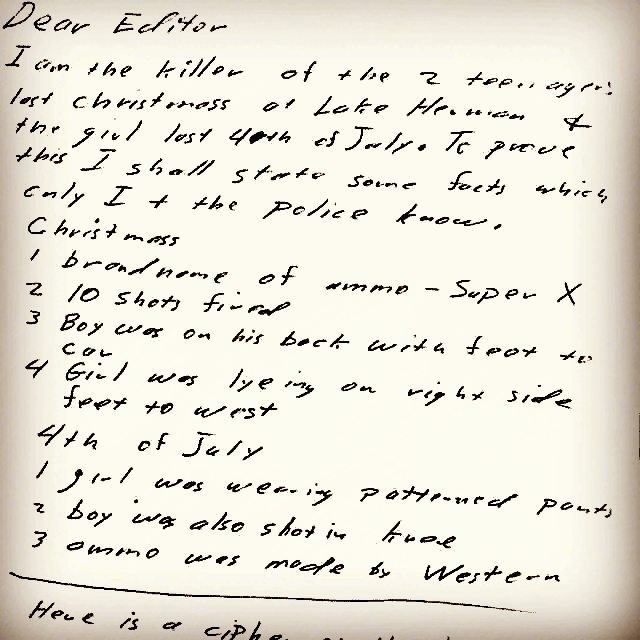 Dear Editor
I am the killer of the 2 teen agers
last christmass at Lake Herman &
the girl last 4th of July. To prove
this I shall state some facts which
only I + the police know.
Christmass
1 brand name of ammo - Super X
2 10 shots fired
3 Boy was on his back with feet to
car
4 Girl was lyeing on right side
feet to west
4th of July
1 girl was wearing patterned pants
2 boy was also shot in knee
3 ammo was made by Western
Here is a cipher